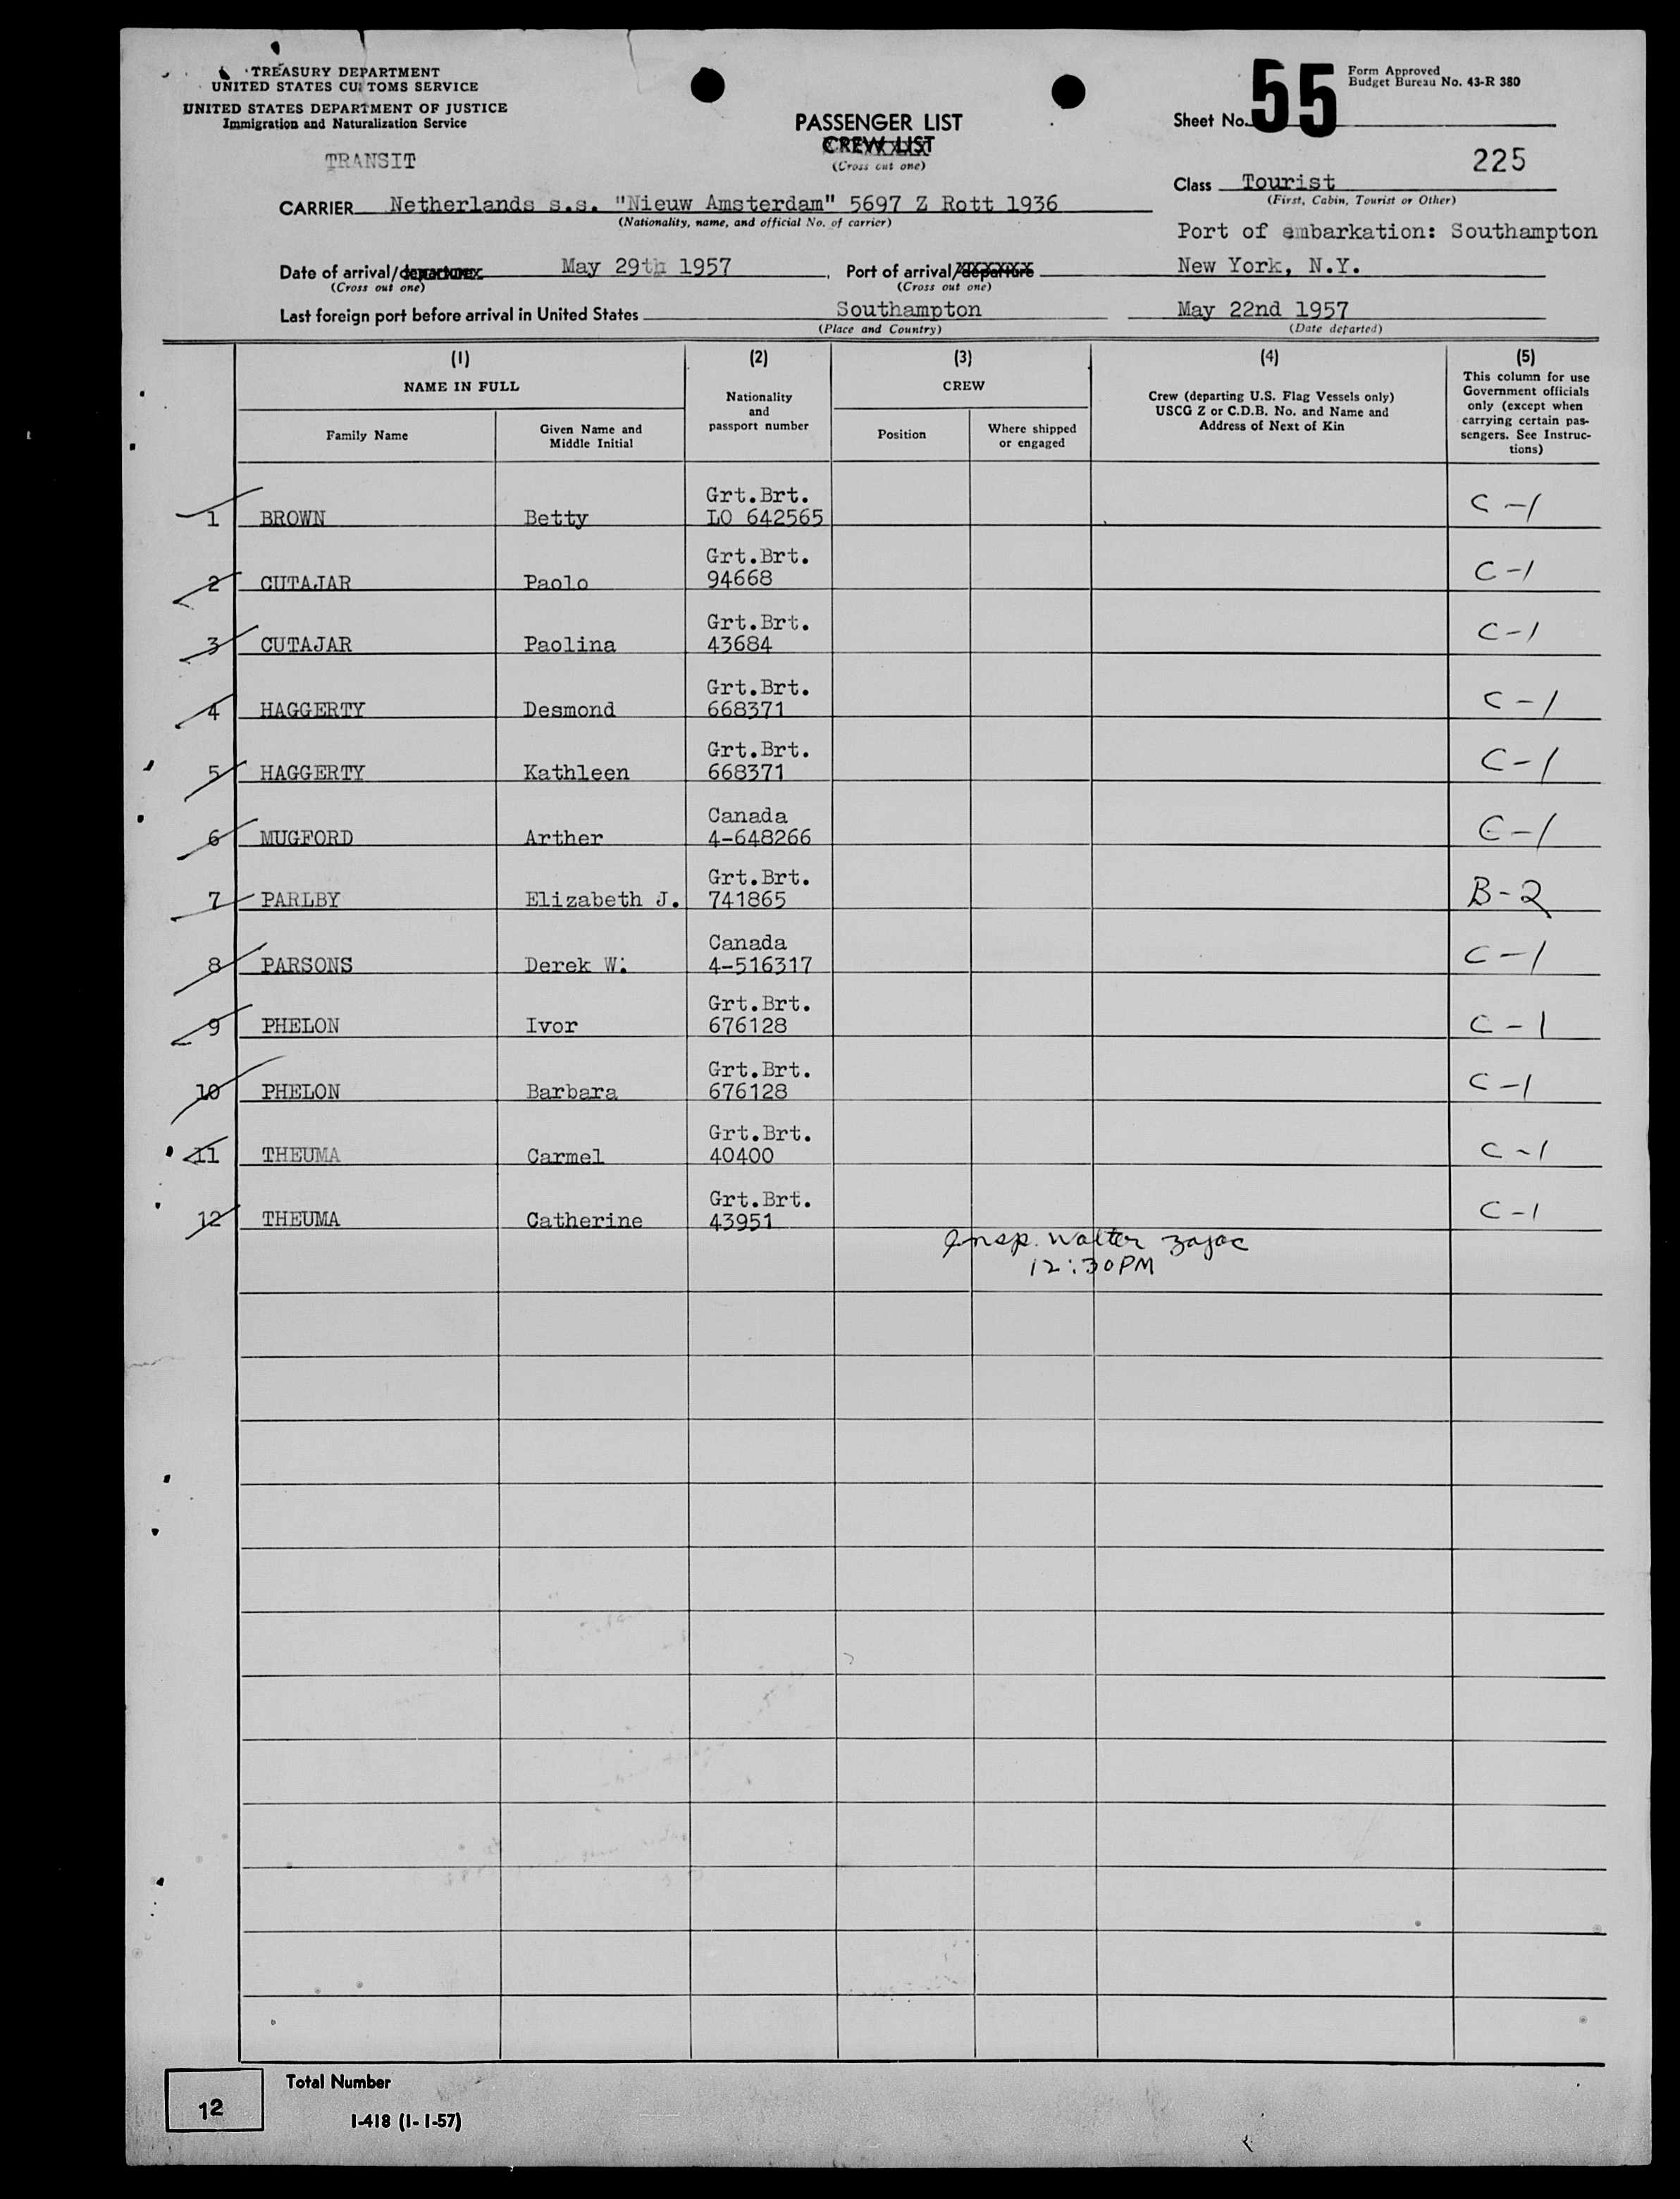 TREASURY DEPARTMENT
UNITED STATES CUSTOMS SERVICE
UNITED STATES DEPARTMENT OF JUSTICE
Immigration and Naturalization Service
TRANSIT
PASSENGER LIST
CREW LIST
(Cross out one)
Form Approved
Budget Bureau No. 43-R 380
Sheet No. 55
225
Class Tourist
(First, Cabin, Tourist or Other)
CARRIER Netherlands s.s. "Nieuw Amsterdam" 5697 Z Rott 1936
(Nationality, name, and official No. of carrier)
Port of embarkation: Southampton
Date of arrival/departure May 29th 1957, Port of arrival/departure New York, N.Y.
(Cross out one) (Cross out one)
Last foreign port before arrival in United States Southampton May 22nd 1957
(Place and Country) (Date departed)
(1) (2) (3) (4) (5)
NAME IN FULL
Family Name
Given Name and
Middle Initial
Nationality
and
passport number
CREW
Position
Where shipped
or engaged
Crew (departing U.S. Flag Vessels only)
USCG Z or C.D.B. No. and Name and
Address of Next of Kin
This column for use
Government officials
only (except when
carrying certain pas-
sengers. See Instruc-
tions)
Grt.Brt.
1 BROWN Betty LO 642565 C-1
Grt.Brt.
2 CUTAJAR Paolo 94668 C-1
Grt.Brt.
3 CUTAJAR Paolina 43684 C-1
Grt.Brt.
4 HAGGERTY Desmond 668371 C-1
Grt.Brt.
5 HAGGERTY Kathleen 668371 C-1
Canada
6 MUGFORD Arther 4-648266 C-1
Grt.Brt.
7 PARLBY Elizabeth J. 741865 B-2
Canada
8 PARSONS Derek W. 4-516317 C-1
Grt.Brt.
9 PHELON Ivor 676128 C-1
Grt.Brt.
10 PHELON Barbara 676128 C-1
Grt.Brt.
11 THEUMA Carmel 40400 C-1
Grt.Brt.
12 THEUMA Catherine 43951 C-1
Insp. Walter Zajac
12:30PM
Total Number
12
I-418 (1-1-57)